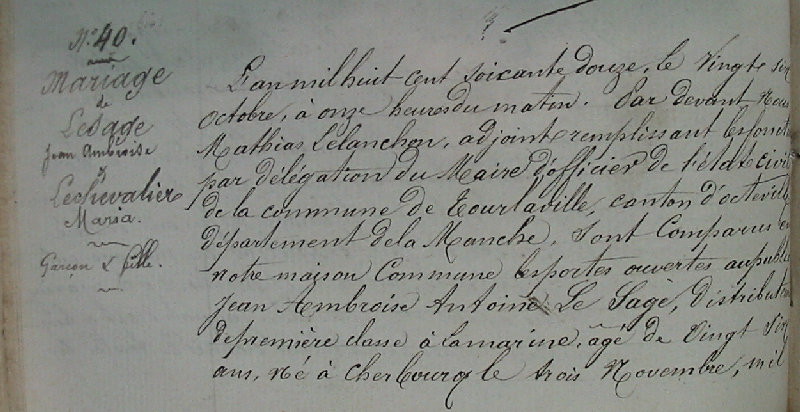 N° 40.
Mariage
de
Lesage
Jean Ambroise
&
Lechevalier
Maria.
Garçon & fille.
L'an mil huit cent soixante douze, le vingt six
octobre, à onze heures du matin. Par devant Nous
Mathias Lelanchon, adjoint remplissant les foncti
par délégation du Maire d'officier de l'état civil
de la commune de Tourlaville, canton d'octeville
département de la Manche, Sont Comparus en
notre maison Commune les portes ouvertes au public
Jean Ambroise Antoine Le Sage, distribut
de première classe à la marine, agé de Vingt Six
ans, Né à Cherbourg le trois Novembre, mil